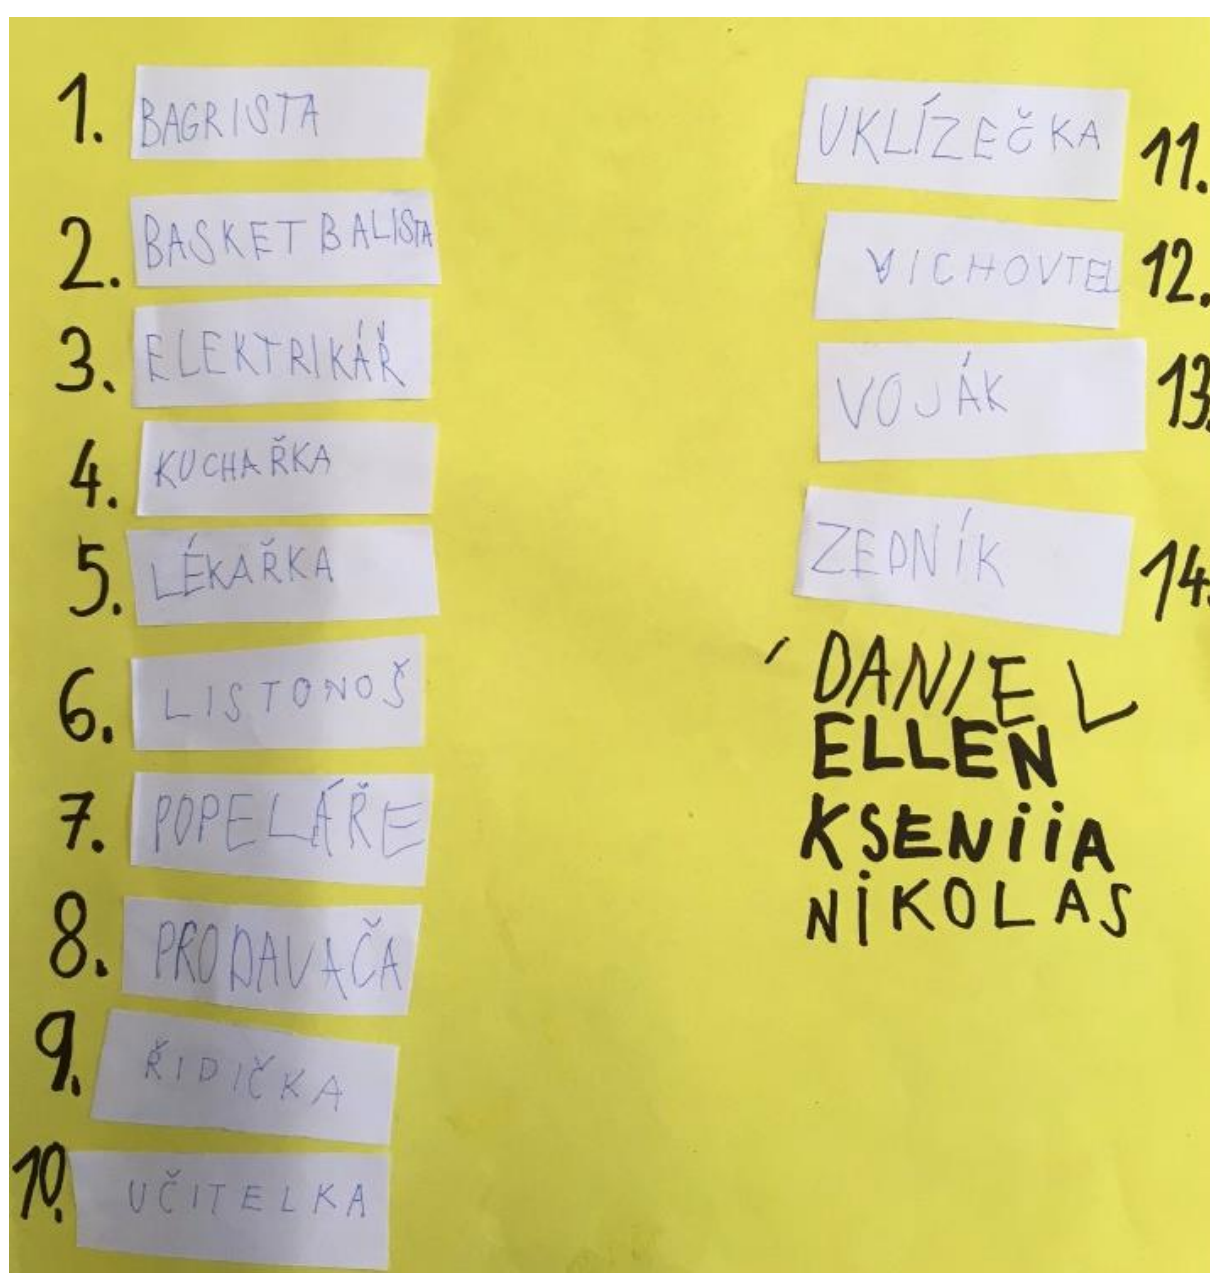 1. BAGRISTA
2. BASKETBALISTA
3. ELEKTRIKÁŘ
4. KUCHAŘKA
5. LÉKAŘKA
6. LISTONOŠ
7. POPELÁŘE
8. PRODAVAČA
9. ŘIDIČKA
10. UČITELKA
UKLÍZEČKA 11.
VICHOVTEL 12.
VOJÁK 13.
ZEDNÍK 14.
DANIEL
ELLEN
KSENiiA
NiKOLAS